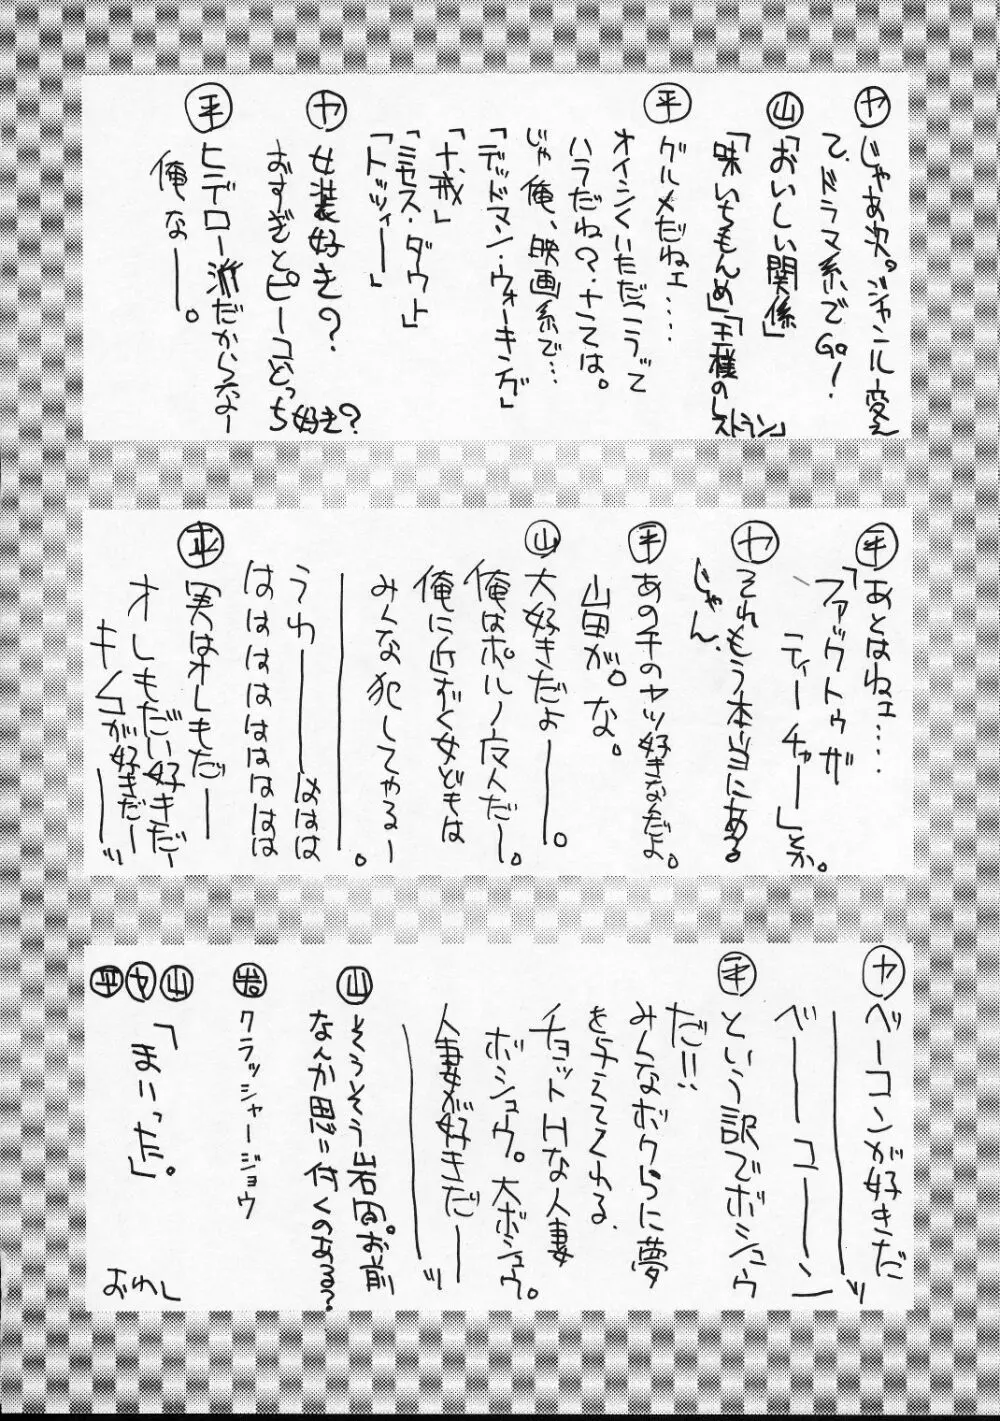 ヤ じゃあ次。ジャンル変え
て、ドラマ系でGo!
山 「おいしい関係」
「味いちもんめ」「王様のレストラン」
平 グルメだねェ…。
オイシくいただこうって
ハラだね?さては。
じゃ俺、映画系で…
「デッドマン・ウォーキング」
「十戒」
「ミセス・ダウト」
「トッツィー」
ヤ 女装好き?
おすぎとピーコどっち好き?
平 ヒデロー派だからなー
俺なー。
平 あとはねェ…
「ファックトゥザ
ティーチャー」とか。
ヤ それもう本当にある
じゃん。
平 あのチのヤツ好きなんだよ。
山田が。な。
山 大好きだよー。
俺はポルノ魔人だー。
俺に近ずく女どもは
みんな犯してやるー
ー。
うわーははは
はははははははは
平 実はオレもだー
オレもだい好きだー
キノコが好きだーーッ
ヤ ベーコンが好きだ
ーーッ
ベーコーンー
平 という訳でボシュウ
だ!!
みんなボクらに夢
を与えてくれる
チョットHな人妻
ボシュウ。大ボシュウ。
人妻が好きだー
ーーッ
山 そうそう岩田。お前
なんか思い付くのある?
岩 クラッシャージョウ
山ヤ平 「まいった」。
おわし